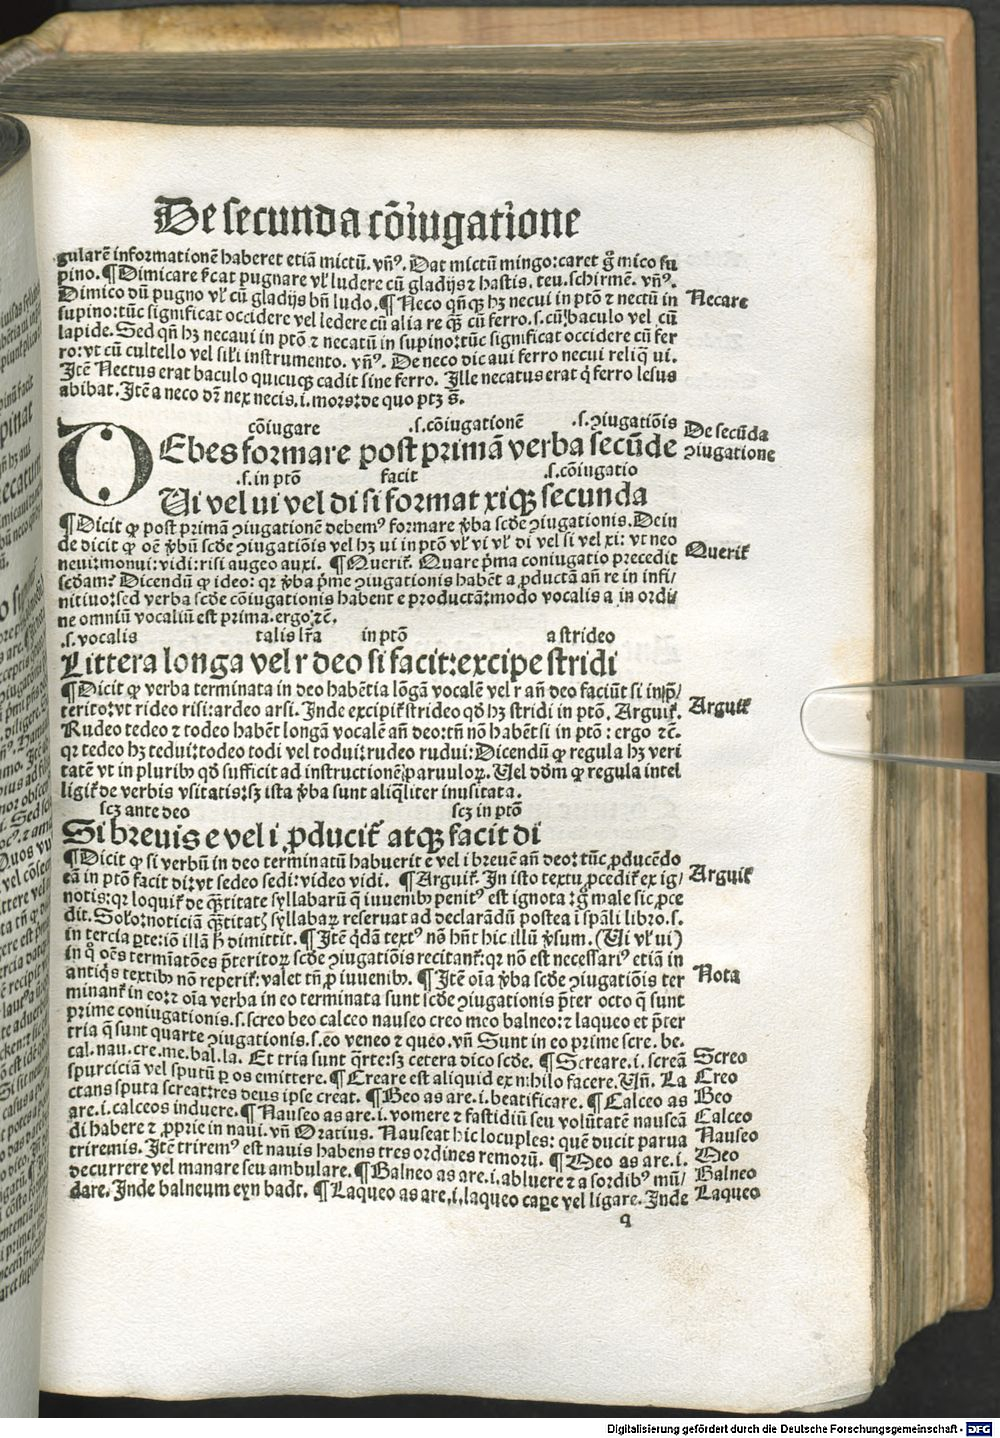 De secunda cōiugatione
gularē informationē haberet etiā mictū. vñꝰ. Dat mictū mingo: caret g̊ mico su
pino. ¶ Dimicare ē̓cat pugnare vl̓ ludere cū gladijs ⁊ hastis. teu. schirmē. vñꝰ.
Dimico dū pugno vl̓ cū gladijs bñ ludo. ¶ Neco qñqꝫ hꝫ necui in ptō ⁊ nectū in
Necare
supino: tūc significat occidere vel ledere cū alia re qꝫ cū ferro. s. cū baculo vel cū
lapide. Sed qñ hꝫ necaui in ptō ⁊ necatū in supino: tūc significat occidere cū fer
ro: vt cū cultello vel sil̓i instrumento. vñꝰ. De neco dic aui ferro necui reliq̄ ui.
Itē Nectus erat baculo quicūqꝫ cadit sine ferro. Ille necatus erat q̇ ferro lesus
abibat. Itē a neco dr̄ nex necis. i. mors: de quo ptꝫ s̄.
cōiugare .s. cōiugationē .s. ꝯiugatiōis
DEbes formare post primā verba secūde
De secūda
ꝯiugatione
.s. in ptō facit .s. cōiugatio
Ui vel ui vel di si format xiqꝫ secunda
¶ Dicit ꝙ post primā ꝯiugationē debemꝰ formare v̓ba scd̓e ꝯiugationis. Dein
de dicit ꝙ oē v̓bū scd̓e ꝯiugatiōis vel hꝫ ui in ptō vl̓ vi vl̓ di vel si vel xi: vt neo
neui: monui: vidi: risi augeo auxi. ¶ Queriť. Quare p̓ma coniugatio precedit
Queriť
scd̓am? Dicendū ꝙ ideo: qꝛ v̓ba p̓me ꝯiugationis habēt a ꝓductā añ re in infi/
nitiuo: sed verba scd̓e cōiugationis habent e productā: modo vocalis a in ordi
ne omniū vocaliū est prima. ergo ⁊c̄.
.s. vocalis talis lr̄a in ptō a strideo
Littera longa vel r deo si facit: excipe stridi
¶ Dicit ꝙ verba terminata in deo habētia lōgā vocalē vel r añ deo faciūt si in p̄/
terito: vt rideo risi: ardeo arsi. Inde excipiť strideo qd̓ hꝫ stridi in ptō. Arguiť.
Arguiť
Rudeo tedeo ⁊ todeo habēt longā vocalē añ deo: tñ nō habēt si in ptō: ergo ⁊c̄.
qꝛ tedeo hꝫ tedui: todeo todi vel todui: rudeo rudui: Dicendū ꝙ regula hꝫ veri
tatē vt in pluribꝫ qd̓ sufficit ad instructionē paruuloꝝ. Uel dd̓m ꝙ regula intel
ligiť de verbis vsitatis: sꝫ ista v̓ba sunt aliq̄liter inusitata.
scꝫ ante deo scꝫ in ptō
Si breuis e vel i ꝓduciť atqꝫ facit di
¶ Dicit ꝙ si verbū in deo terminatū habuerit e vel i breuē añ deo: tūc ꝓducēdo
eā in ptō facit di: vt sedeo sedi: video vidi. ¶ Arguiť. In isto textu ꝓcediť ex ig/
Arguiť
notis: qꝛ loquiť de q̄titate syllabarū q̄ iuuenibꝫ penitꝰ est ignota: g̊ male sic ꝓce
dit. Sol̓o: noticiā q̄titatꝭ syllabaꝝ reseruat ad declarādū postea ī spāli libro. s.
in tercia ꝑte: iō illā h̓ dimittit. ¶ Itē q̄dā textꝰ nō hñt hic illū v̓sum. (Ui vl̓ ui)
in q̊ oēs termīatōes p̄teritoꝝ scd̓e ꝯiugatiōis recitanť: qꝛ nō est necessariꝰ etiā in
antiq̇s textibꝫ nō reperiť: valet tñ ꝓ iuuenibꝫ. ¶ Itē oīa v̓ba scd̓e ꝯiugatiōis ter
Nota
minanť in eo: ⁊ oīa verba in eo terminata sunt scd̓e ꝯiugationis p̄ter octo q̄ sunt
prime coniugationis. s. screo beo calceo nauseo creo meo balneo: ⁊ laqueo et p̄ter
tria q̄ sunt quarte ꝯiugationis. s. eo veneo ⁊ queo. vñ Sunt in eo prime scre. be.
cal. nau. cre. me. bal. la. Et tria sunt q̄rte: sꝫ cetera dico scd̓e. ¶ Screare. i. screā
Screo
spurciciā vel sputū ꝑ os emittere. ¶ Creare est aliquid ex nihilo facere. Uñ. La
Creo
ctans sputa screat: res deus ipse creat. ¶ Beo as are. i. beatificare. ¶ Calceo as
Beo
are. i. calceos induere. ¶ Nauseo as are. i. vomere ⁊ fastidiū seu volūtatē nauseā
Calceo
di habere ⁊ ꝓprie in naui. vñ Oratius. Nauseat hic locuples: quē ducit parua
Nauseo
triremis. Itē triremꝰ est nauis habens tres ordines remorū. ¶ Meo as are. i.
Meo
decurrere vel manare seu ambulare. ¶ Balneo as are. i. abluere ⁊ a sordibꝰ mū/
Balneo
dare. Inde balneum eyn badt. ¶ Laqueo as are. i. laqueo caꝑe vel ligare. Inde
Laqueo
q
Digitalisierung gefördert durch die Deutsche Forschungsgemeinschaft - DFG